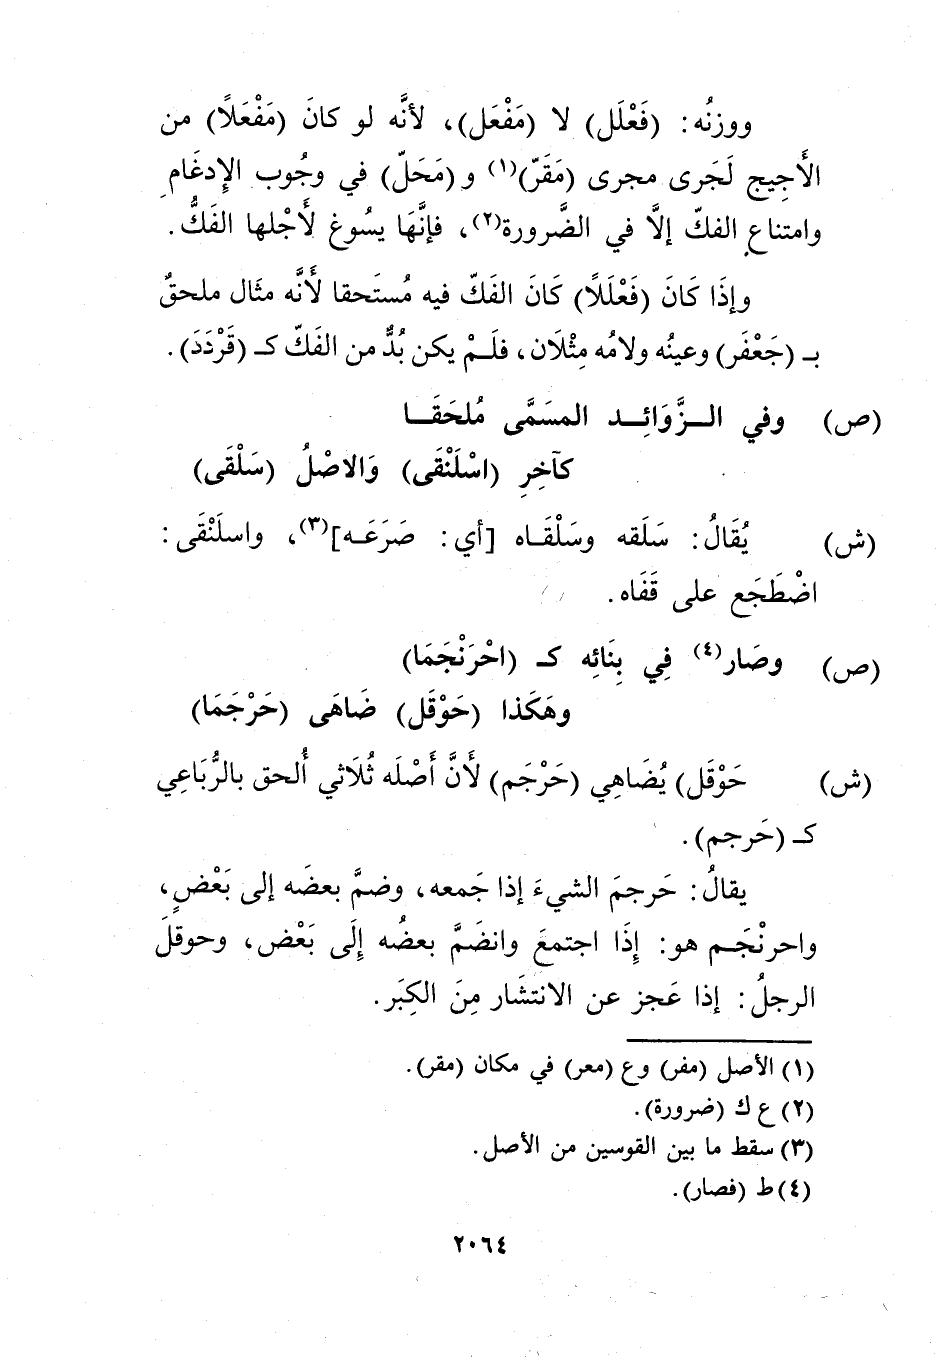 ووزنُه: (فَعْلَل) لا (مَفْعَل)، لأنَّه لو كانَ (مَفْعَلاً) من
الأَجِيج لَجَرى مجرى (مَقَرّ)(١) و (مَحَلّ) في وجُوب الإِدغَامِ
وامتناعِ الفكّ إلَّا في الضَّرورة(٢)، فإنَّهَا يسُوغ لأَجْلها الفَكُّ.
وإذَا كَانَ (فَعْلَلًا) كَانَ الفَكّ فيه مُستَحقا لأَنَّه مثَال ملحقٌ
بـ (جَعْفَر) وعينُه ولامُه مِثْلَان، فلَـمْ يكن بُدٌّ من الفَكّ كـ (قَرْدَدَ).
(ص) وفي الـزَّوَائِـد المسَمَّى مُلحَقَـا
كآخِرِ (اسْلَنْقَى) وَالاصْلُ (سَلْقَى)
(ش) يُقَالُ: سَلَقه وسَلْقَـاه [أي: صَرَعَـه](٣)، واسلَنْقَى:
اضْطَجَع على قَفَاه.
(ص) وصَار(٤) فِي بِنَائِه كـ (احْرَنْجَمَا)
وهَكَذا (حَوْقَل) ضَاهَى (حَرْجَمَا)
(ش) حَوْقَل) يُضَاهِي (حَرْجَم) لأَنَّ أَصْلَه ثُلَاثي أُلحق بالرُّبَاعِي
كـ (حَرجم).
يقالُ: حَرجمَ الشيءَ إذا جَمعه، وضمَّ بعضَه إلى بَعْضٍ،
واحرنْجَـم هو: إِذَا اجتمعَ وانضَمَّ بعضُه إِلَى بَعْض، وحوقلَ
الرجلُ: إذا عَجز عن الانتشَار مِنَ الكِبَر.
(١) الأصل (مفر) وع (معر) في مكان (مقر).
(٢) ع ك (ضرورة).
(٣) سقط ما بين القوسين من الأصل.
(٤) ط (فصار).
٢٠٦٤